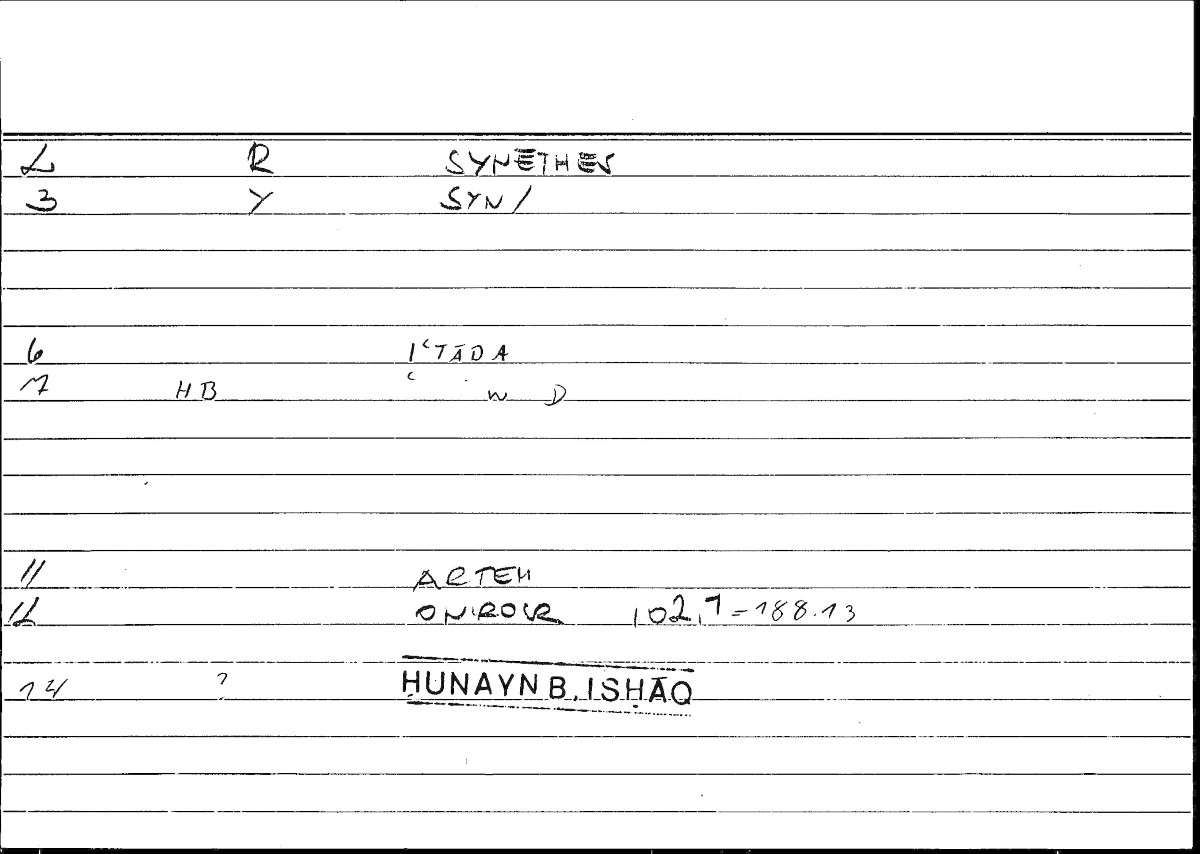 2 R SYNĒTHĒS
3 Y SYN/
6 IʿTĀDA
7 HB ʿ W D
11 ARTEM
12 ONIROCR 102,1=188.13
14 ? ḤUNAYN B. ISḤĀQ